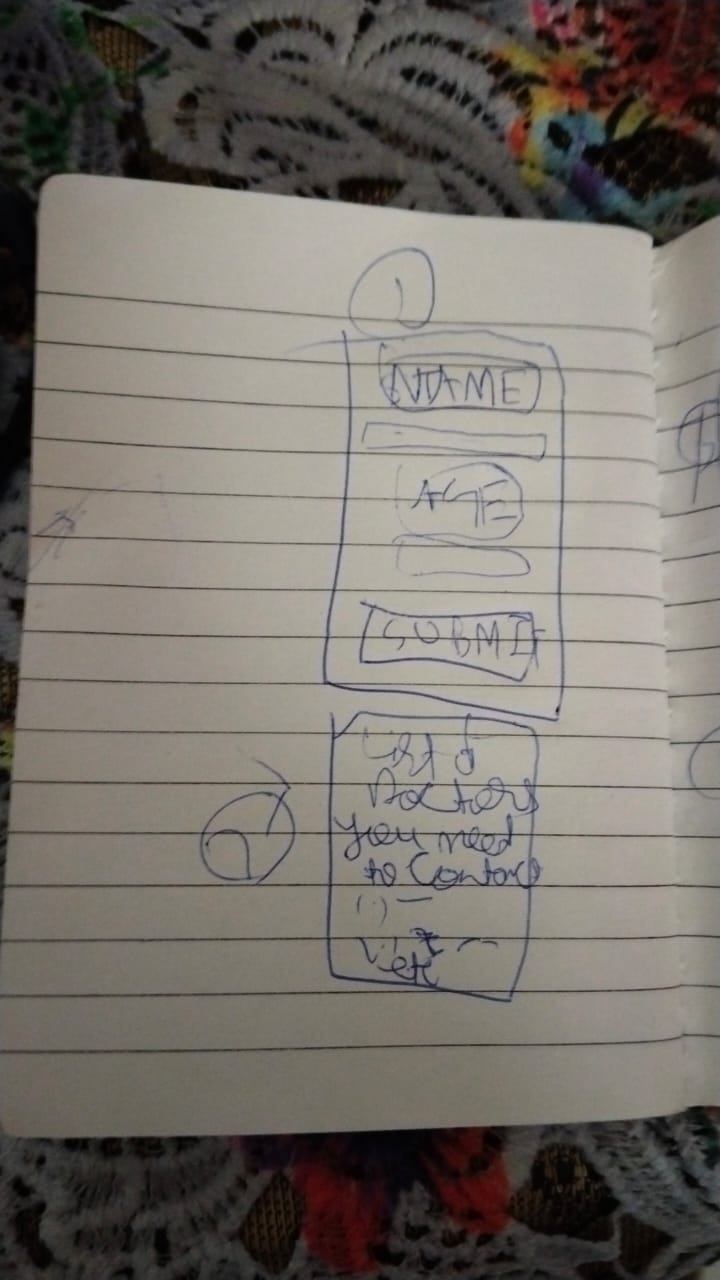 1
NAME
AGE
SUBMIT
2
List of
Doctors
you need
to Contac
(i) —
etc